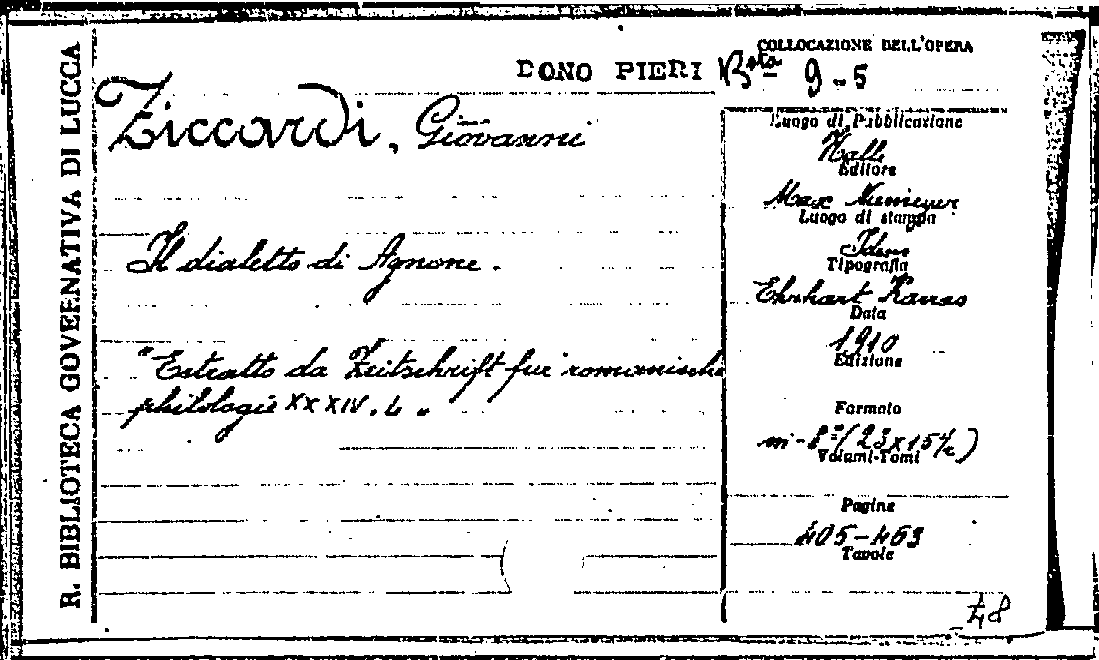 R. BIBLIOTECA GOVERNATIVA DI LUCCA
COLLOCAZIONE DELL'OPERA
DONO PIERI Bta 9-5
Ziccardi, Giovanni
Il dialetto di Agnone.
"Estratto da Zeitschrift für romanische
philologie XXXIV. 4 "
Luogo di Pubblicazione
Halle
Editore
Max Niemeyer
Luogo di stampa
Idem
Tipografia
Ehrhart Karras
Data
1910
Edizione
Formato
in-8°(23x15½)
Volumi-Tomi
Pagine
405-463
Tavole
48